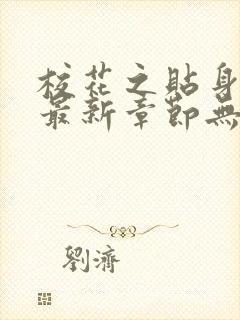 校花之貼身
最新章節無
劉濟